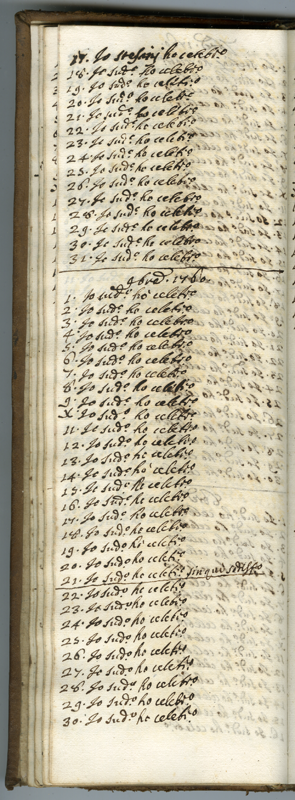 17. Io Stefanj ho celebr.o
18. Io sud.o ho celebr.o
19. Io sud.o ho celebr.o
20. Io sud.o ho celebr.o
21. Io sud.o ho celebr.o
22. Io sud.o ho celebr.o
23. Io sud.o ho celebr.o
24. Io sud.o ho celebr.o
25. Io sud.o ho celebr.o
26. Io sud.o ho celebr.o
27. Io sud.o ho celebr.o
28. Io sud.o ho celebr.o
29. Io sud.o ho celebr.o
30. Io sud.o ho celebr.o
31. Io sud.o ho celebr.o
9bre. 1760
1. Io sud.o ho celebr.o
2. Io sud.o ho celebr.o
3. Io sud.o ho celebr.o
4. Io sud.o ho celebr.o
5. Io sud.o ho celebr.o
6. Io sud.o ho celebr.o
7. Io sud.o ho celebr.o
8. Io sud.o ho celebr.o
9. Io sud.o ho celebr.o
X. Io sud.o ho celebr.o
11. Io sud.o ho celebr.o
12. Io sud.o ho celebr.o
13. Io sud.o ho celebr.o
14. Io sud.o ho celebr.o
15. Io sud.o ho celebr.o
16. Io sud.o ho celebr.o
17. Io sud.o ho celebr.o
18. Io sud.o ho celebr.o
19. Io sud.o ho celebr.o
20. Io sud.o ho celebr.o
21. Io sud.o ho celebr.o sin qui
22. Io sud.o ho celebr.o
23. Io sud.o ho celebr.o
24. Io sud.o ho celebr.o
25. Io sud.o ho celebr.o
26. Io sud.o ho celebr.o
27. Io sud.o ho celebr.o
28. Io sud.o ho celebr.o
29. Io sud.o ho celebr.o
30. Io sud.o ho celebr.o